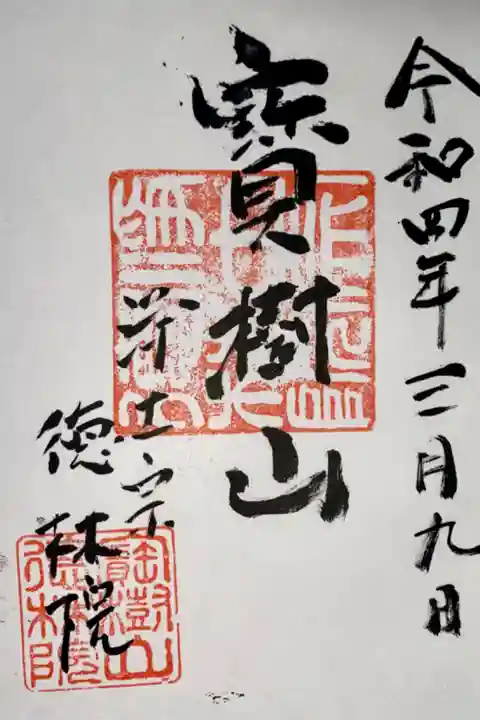 今和四年三月九日
寳樹山
浄土宗
徳林院